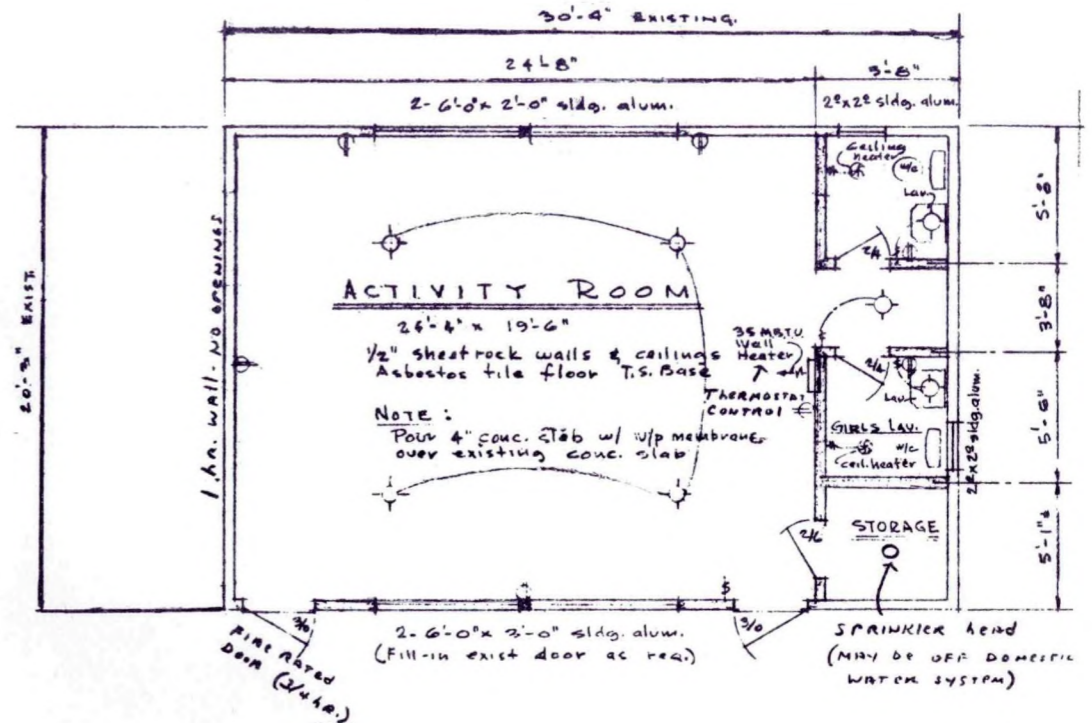 30'-4" EXISTING.
24'-8"
5'-8"
2- 6'-0" x 2'-0" sldg. alum.
2º x 2º sldg. alum.
20'-3" EXIST.
1 hr. WALL - NO OPENINGS
Ceiling heater
W/C
Lav.
2/4
5'-8"
3'-8"
5'-6"
5'-1"±
ACTIVITY ROOM
24'-4" x 19'-6"
1/2" sheetrock walls & ceilings
Asbestos tile floor T.S. Base
NOTE:
Pour 4" conc. slab w/ w/p membrane
over existing conc. slab
35 M.B.T.U.
Wall
Heater
THERMOSTAT
CONTROL
2/4
Lav.
GIRLS LAV.
W/C
ceil. heater
2º x 2º sldg. alum.
STORAGE
2/6
$
3/0
3/0
FIRE RATED
DOOR
(3/4 hr.)
2- 6'-0" x 3'-0" sldg. alum.
(Fill-in exist door as req.)
SPRINKLER head
(MAY BE OFF DOMESTIC
WATER SYSTEM)